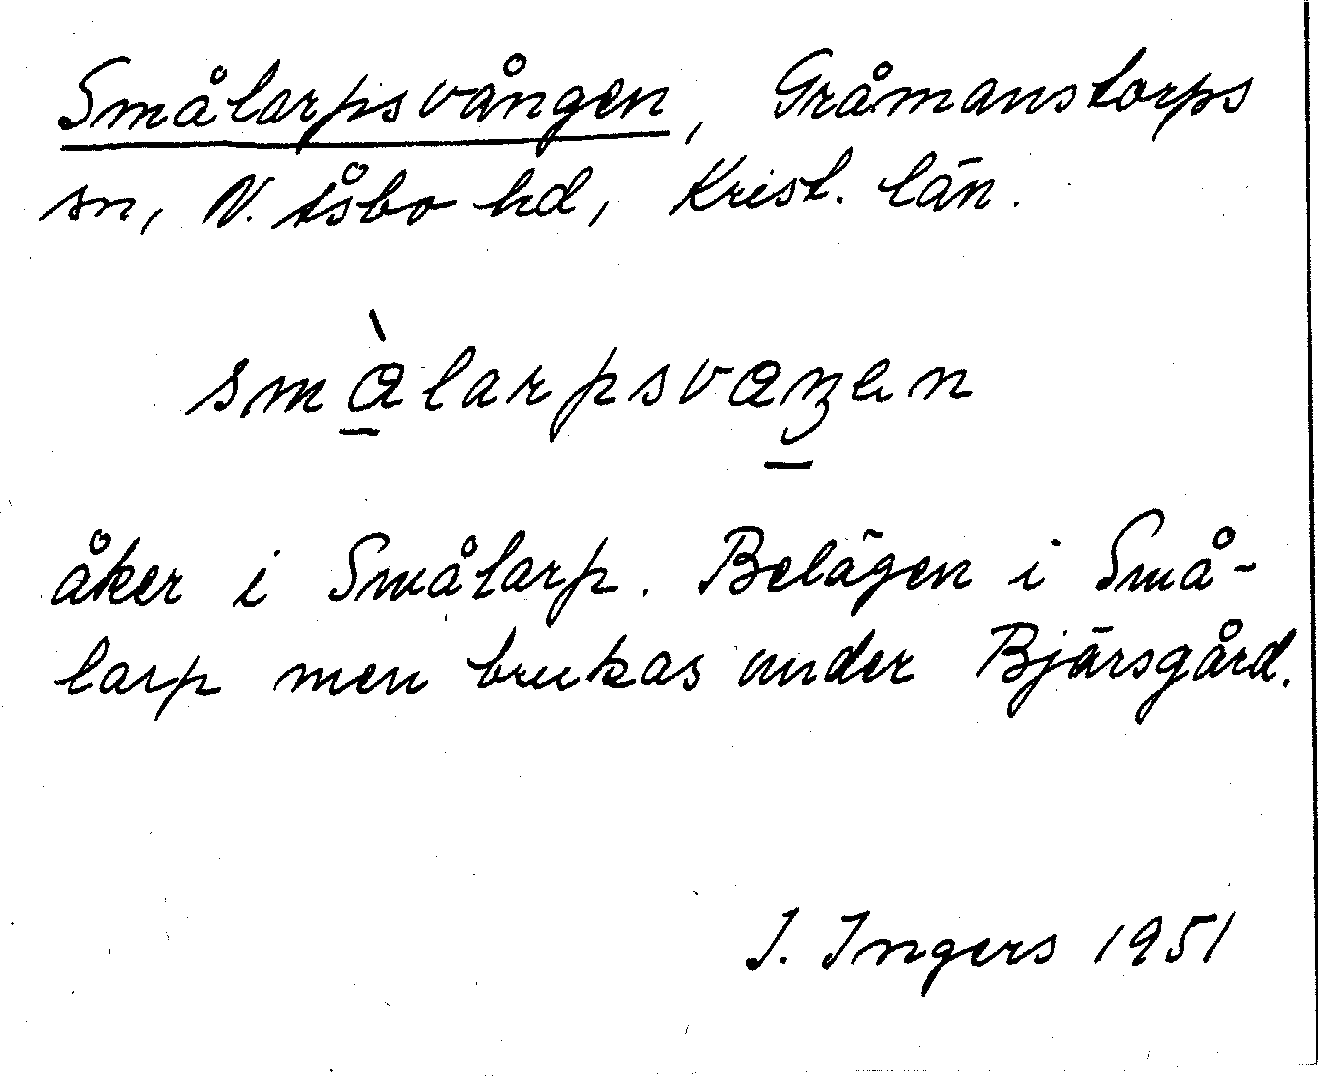 Smålarpsvången, Gråmanstorps
sn, N. Åsbo hd, Krist. län.
åker i Smålarp. Belägen i Små-
larp men brukas under Bjärsgård.
I. Ingers 1951